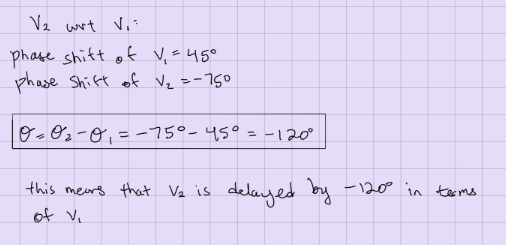 V₂ wrt V₁:
phase shift of V₁ = 45°
phase shift of V₂ = -75°
θ = θ₂ - θ₁ = -75° - 45° = -120°
this means that V₂ is delayed by -120° in terms
of V₁